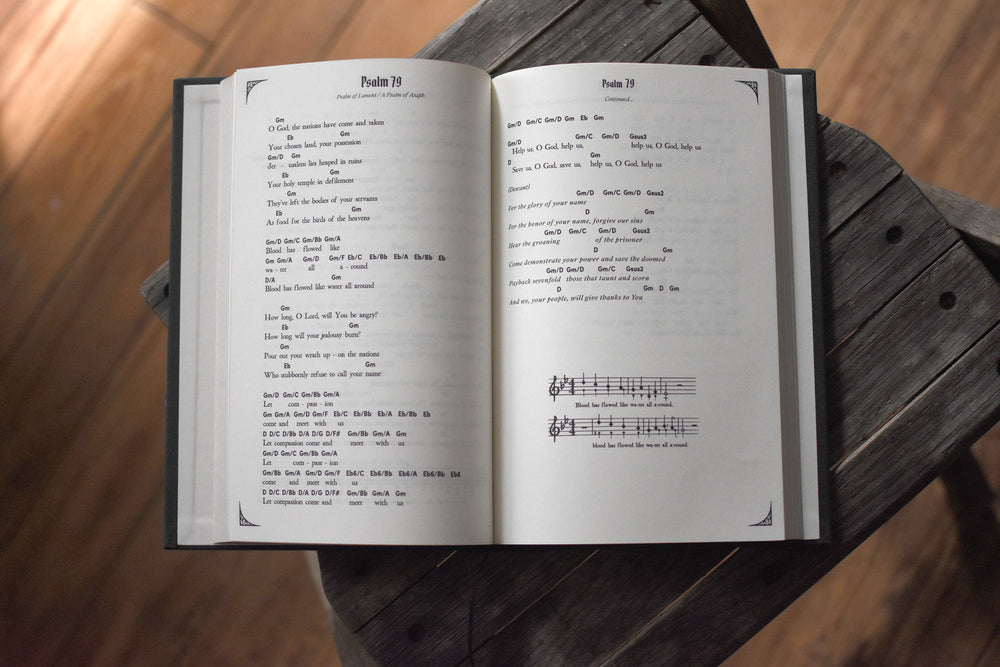 Psalm 79
Psalm of Lament / A Psalm of Asaph.
Gm
O God, the nations have come and taken
Eb Gm
Your chosen land, your possession
Gm/D Gm
Jer - usalem lies heaped in ruins
Eb Gm
Your holy temple in defilement
Gm
They've left the bodies of your servants
Eb Gm
As food for the birds of the heavens
Gm/D Gm/C Gm/Bb Gm/A
Blood has flowed like
Gm Gm/A Gm/D Gm/F Eb/C Eb/Bb Eb/A Eb/Bb Eb
wa - ter all a - round
D/A Gm
Blood has flowed like water all around
Gm
How long, O Lord, will You be angry?
Eb Gm
How long will your jealousy burn?
Gm
Pour out your wrath up - on the nations
Eb Gm
Who stubbornly refuse to call your name
Gm/D Gm/C Gm/Bb Gm/A
Let com - pass - ion
Gm Gm/A Gm/D Gm/F Eb/C Eb/Bb Eb/A Eb/Bb Eb
come and meet with us
D D/C D/Bb D/A D/G D/F# Gm/Bb Gm/A Gm
Let compassion come and meet with us
Gm/D Gm/C Gm/Bb Gm/A
Let com - pass - ion
Gm/Bb Gm/A Gm/D Gm/F Eb6/C Eb6/Bb Eb6/A Eb6/Bb Eb6
come and meet with us
D D/C D/Bb D/A D/G D/F# Gm/Bb Gm/A Gm
Let compassion come and meet with us
Psalm 79
Continued...
Gm/D Gm/C Gm/D Gm Eb Gm
Gm/D Gm/C Gm/D Gsus2
Help us, O God, help us, help us, O God, help us
D Gm
Save us, O God, save us, help us, O God, help us
(Descant)
Gm/D Gm/C Gm/D Gsus2
For the glory of your name
D Gm
For the honor of your name, forgive our sins
Gm/D Gm/C Gm/D Gsus2
Hear the groaning of the prisoner
D Gm
Come demonstrate your power and save the doomed
Gm/D Gm/D Gm/C Gsus2
Payback sevenfold those that taunt and scorn
D Gm D Gm
And we, your people, will give thanks to You
Blood has flowed like wa-ter all a-round,
blood has flowed like wa-ter all a-round.